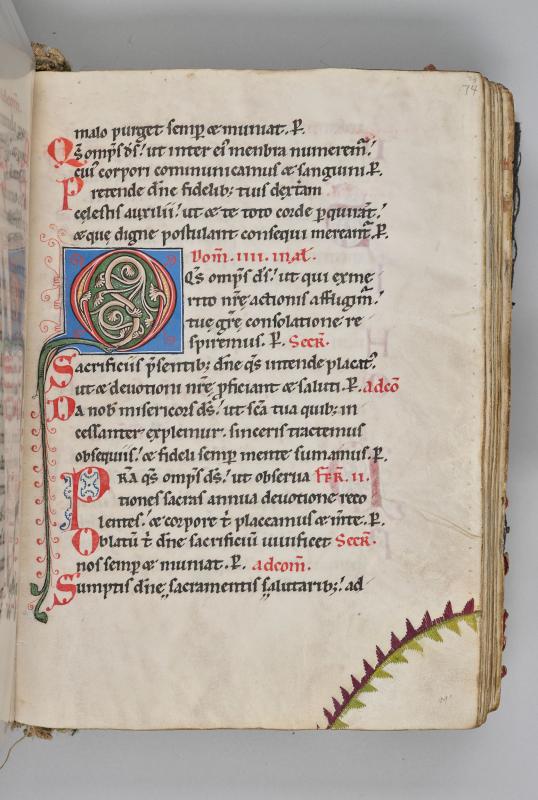 74
malo purget semp̄ & muniat. P̱.
Qs̄ omp̄s ds̄! ut inter ei' menbra numerem̄!
cui' corpori communicamus & sanguini. P̱.
Pretende dn̄e fidelib; tuis dext̄am
celestis auxilii! ut & te toto corde ꝑquirāt!
& que digne postulant consequi mereant̄. P̱.
Dom̄. IIII. in xl.
C̄s omp̄s ds̄! ut qui exme
rito nr̄e actionis affligim̄!
tue gr̄e consolatione re
spiremus. P̱. Secr̄.
Sacrificiis p̄sentib; dn̄e qs̄ intende placat'!
ut & deuotioni nr̄e ꝓficiant & saluti. P̱. adcō
Da nob̄ misericors ds̄! ut sc̄a tua quib; in
cessanter explemur. sinceris tractemus
obsequiis! & fideli semp̄ mente sumamus. P̱.
Pr̄a qs̄ omp̄s ds̄! ut obserua fr̄. II.
tiones sacras annua deuotione reco
lentes! & corpore t̄ placeamus & m̄te. P̱.
Oblatū t̄ dn̄e sacrificiū uiuificet Secr̄.
nos semp̄ & muniat. P̱. adcom̄.
Sumptis dn̄e sacramentis salutarib;! ad